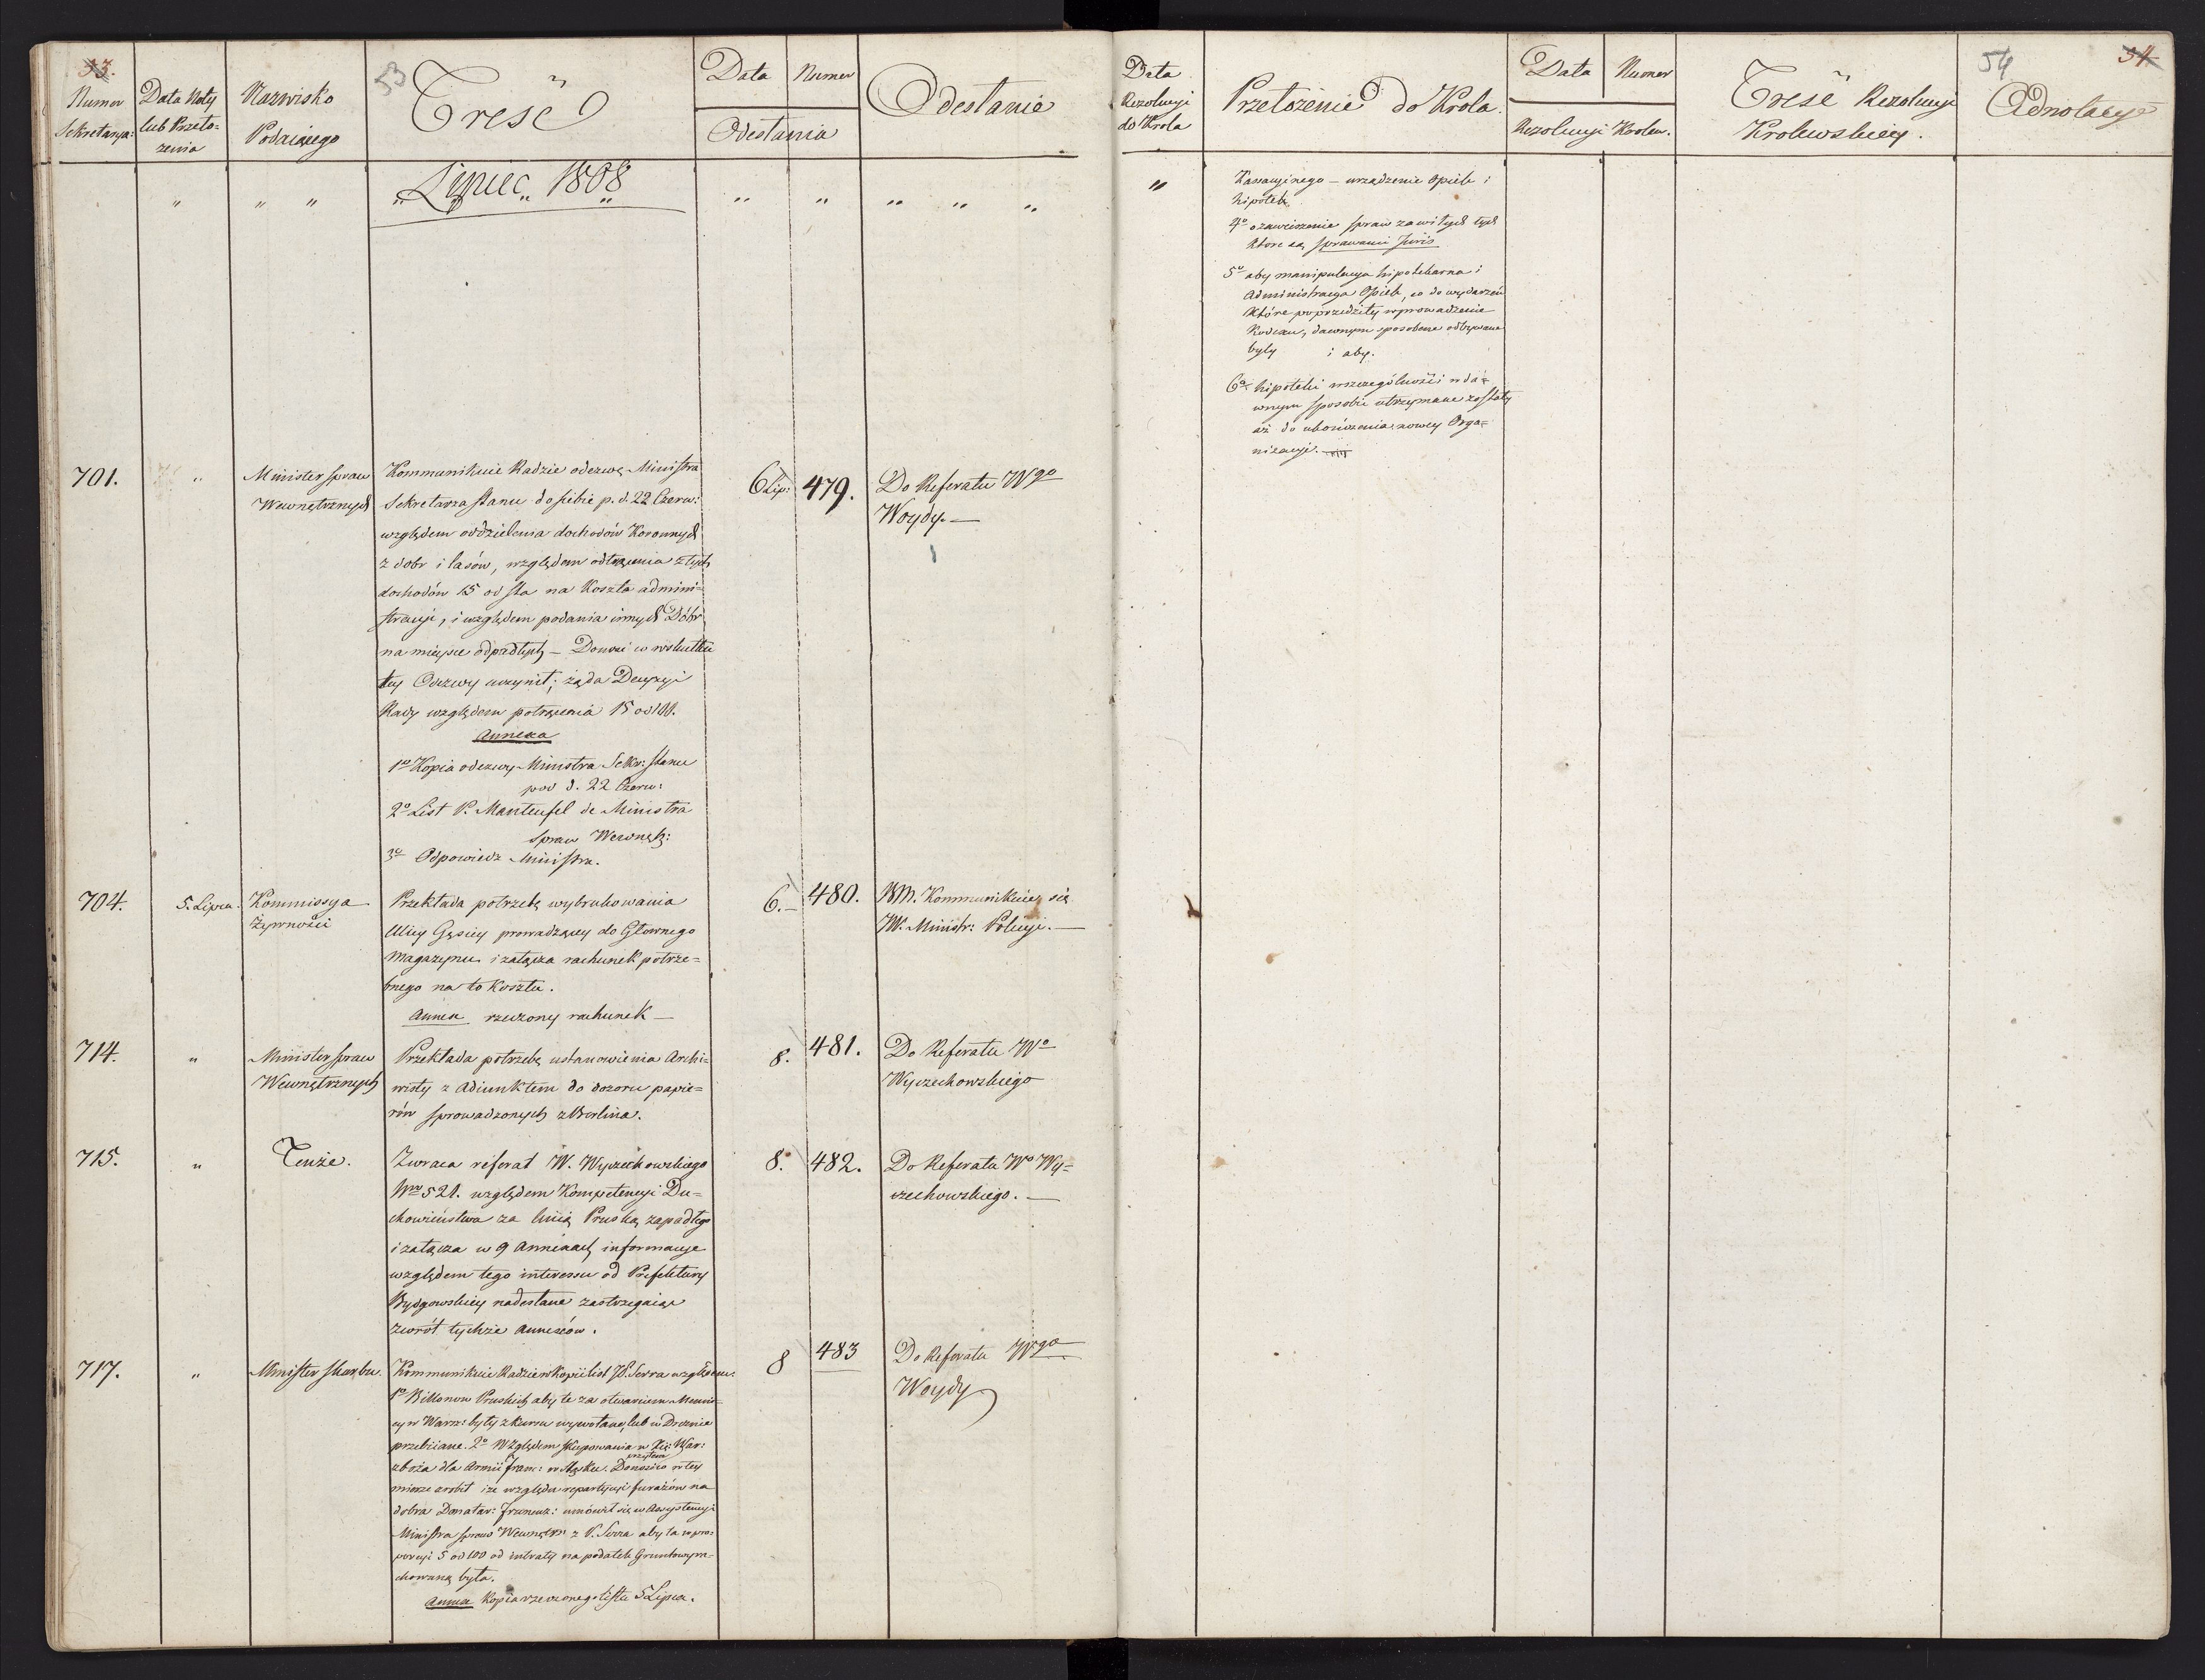 33.
53
Numer
Sekretarya:
Data Noty
lub Przeło=
żenia
Nazwisko
Podaiącego
Treść
Data
Numer
Odesłania
Odesłanie
" " " „Lipiec„ 1808 " " " " "
701.
"
Minister spraw
Wewnętrznych
Kommunikuie Radzie odezwę Ministra
Sekretarza stanu do siebie p. d. 22 Czerw:
względem oddzielenia dochodów Koronnych
z dobr i lasów, względem odtrącenia z tych
dochodów 15 od sta na Koszta admini=
stracyi, i względem podania innych Dóbr
na mieysce odpadłych – Donosi co wskutku
tey Odezwy uczynił; żąda Decyzyi
Rady względem potrącenia 15 od 100.
Annexa
1o Kopia odezwy Ministra Sekr: stanu
pod d. 22 Czerw:
2o List P. Manteufel do Ministra
Spraw Wewnętz:
3o Odpowiedz Ministra.
6 Lip:
479.
Do Referatu Wgo
Woydy. —
704.
5. Lipca.
Kommissya
Żywności
Przekłada potrzebę wybrukowania
Ulicy Gęsiey prowadzącey do Głownego
Magazynu i załącza rachunek potrze=
bnego na to Kosztu.
Annex rzeczony rachunek —
6. –
480.
WM. Kommunikuie się
JW. Ministr: Policyi. —
714.
"
Minister spraw
Wewnętrznych
Przekłada potrzebę ustanowienia Archi=
wisty z Adiunktem do dozoru papie=
rów sprowadzonych z Berlina.
8.
481.
Do Referatu Wo
Wyczechowskiego
715.
"
Tenże.
Zwraca referat W. Wyczechowskiego
Nro 521. względem Kompetencyi Du=
chowieństwa za linią Pruską zapadłego
i załącza w 9 Annexach informacye
względem tego interessu od Prefektury
Bydgowskiey nadesłane zastrzegaiąc
zwrót tychże Annexów.
8.
482.
Do Referatu Wo Wy=
czechowskiego. —
717.
"
Minister skarbu.
Kommunikuie Radzie w Kopii list JP. Serra względem.
1o Billonow Pruskich aby te za otwarciem Menni=
cy w Warsz: były z kursu wywołane, lub w Dreznie
przebiiane. 2o Względem skupowania w Xię: War:
zboża dla Armii franc: w Sląsku. Donosi co w tey
wszystem
mierze zrobił i że względu repartycyi furażów na
dobra Donatar: francuz: umówił się w Assystencyi
Ministra spraw Wewnętr: z P. Serra aby ta w pro=
porcyi 5 od 100 od intraty na podatek Gruntowy ra=
chowaną była.
Annex Kopia rzeczonego listu 5 Lipca.
8
483
Do Referatu Wgo
Woydy
54
34
Data
Rezolucyi
do Krola
Przełożenie do Krola.
Data
Numer
Rezolucyi Krolew.
Treść Rezolucyi
Krolewskiey.
Adnotacye
"
Kassacyinego – urządzenie Opiek i
hipotek
4o o zawieszenie spraw zawiłych tych
ktore są sprawami Juris
5o aby manipulacya hipotekarna i
Administracya Opiek, co do wydarzeń
które poprzedziły wprowadzenie
Kodexu, dawnym sposobem odbywane
były i aby.
6o hipoteki w szczególności w da=
wnym sposobie utrzymane zostały
aż do ukończenia nowey Orga=
nizacyi.